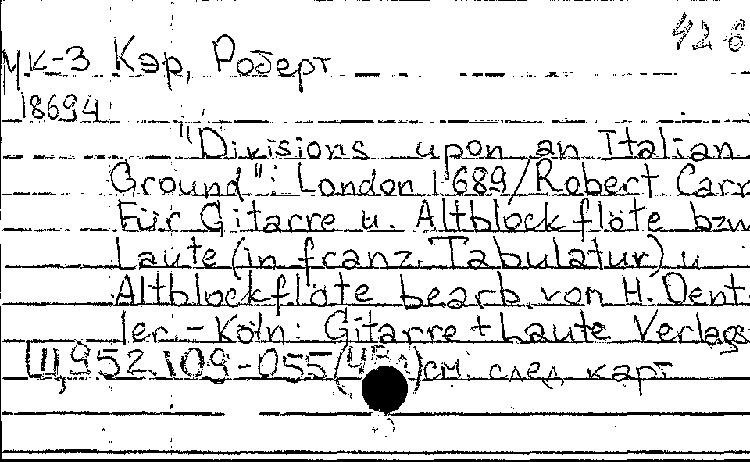 42 6
МК-3 Кэр, Роберт
18694
"Divisions upon an Italian
Ground": London 1689/Robert Carr
Für Gitarre u. Altblockflöte bzw
Laute (in franz. Tabulatur) u
Altblockflöte bearb. von H. Dent
ler. - Köln: Gitarre + Laute Verlags
952.109-055 см. след карт